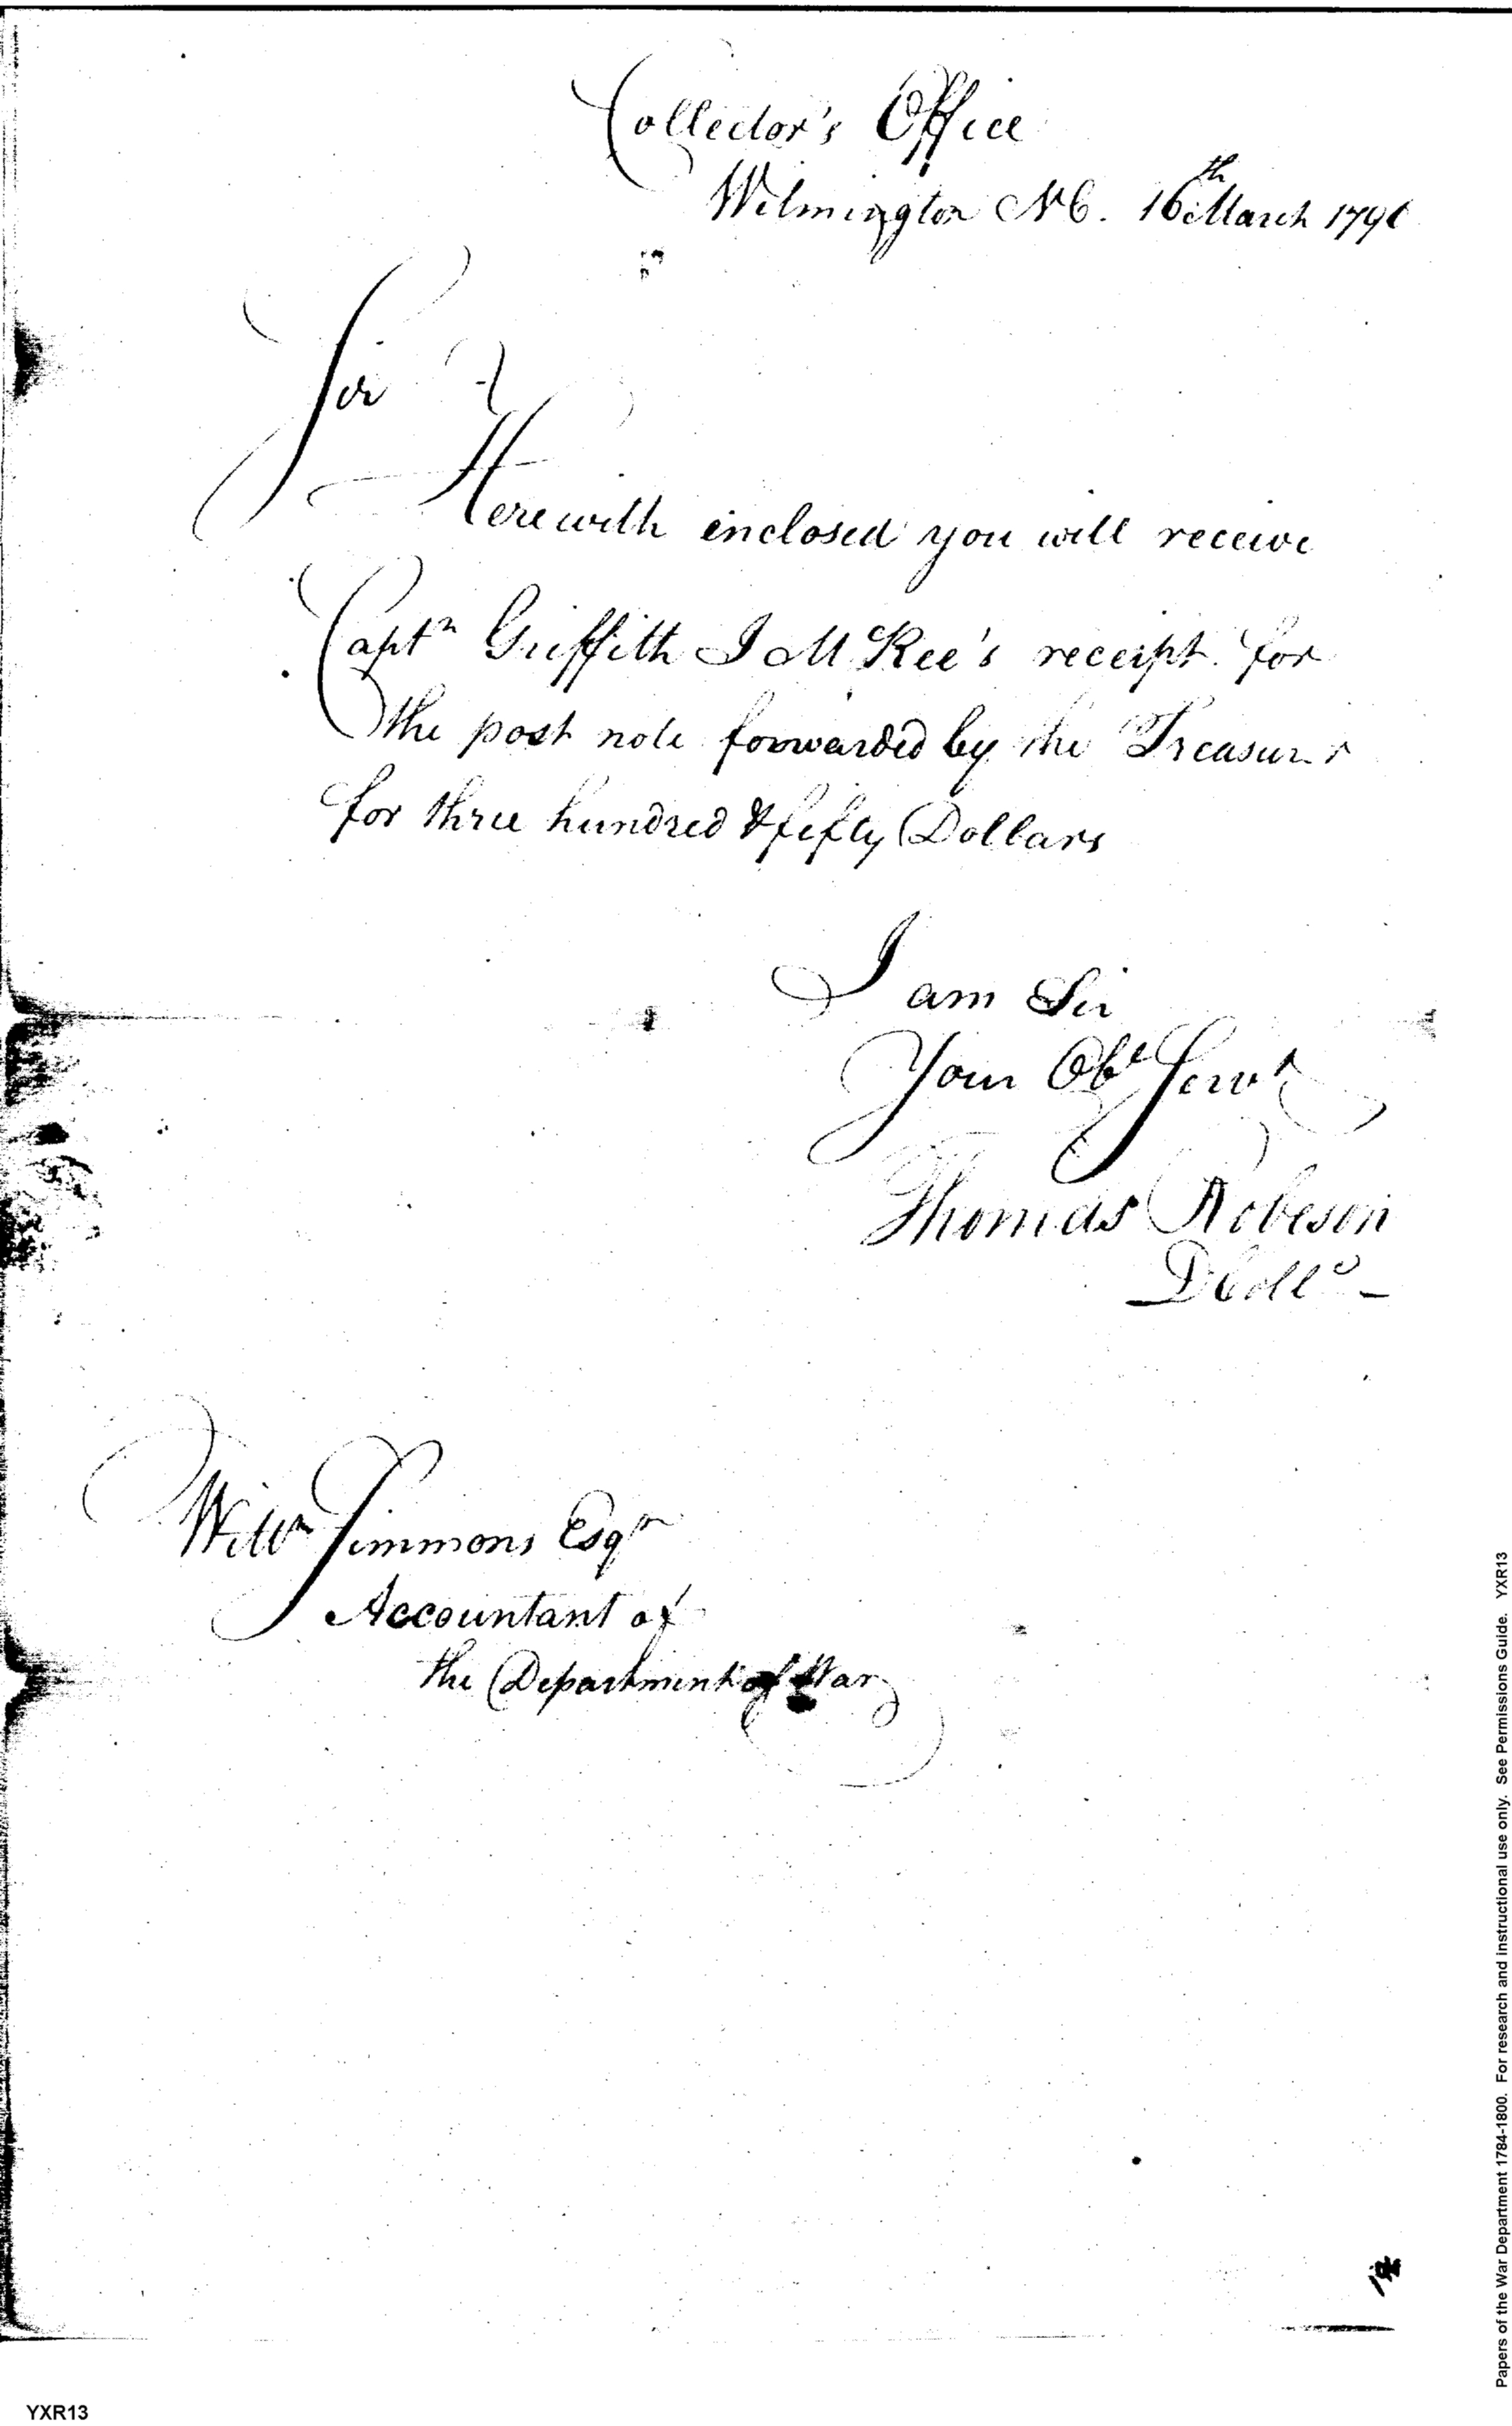 Collector's Office
Wilmington NC. 16th March 179
Sir
Herewith enclosed you will receive
Captn Griffith J McKee's receipt for
the post note forwarded by the Treasurer
for three hundred & fifty Dollars
I am Sir
Your Obt Servt
Thomas Robeson
D Collr
Willm Simmons Esqr
Accountant of
the Department of War
YXR13
Papers of the War Department 1784-1800. For research and instructional use only. See Permissions Guide. YXR13